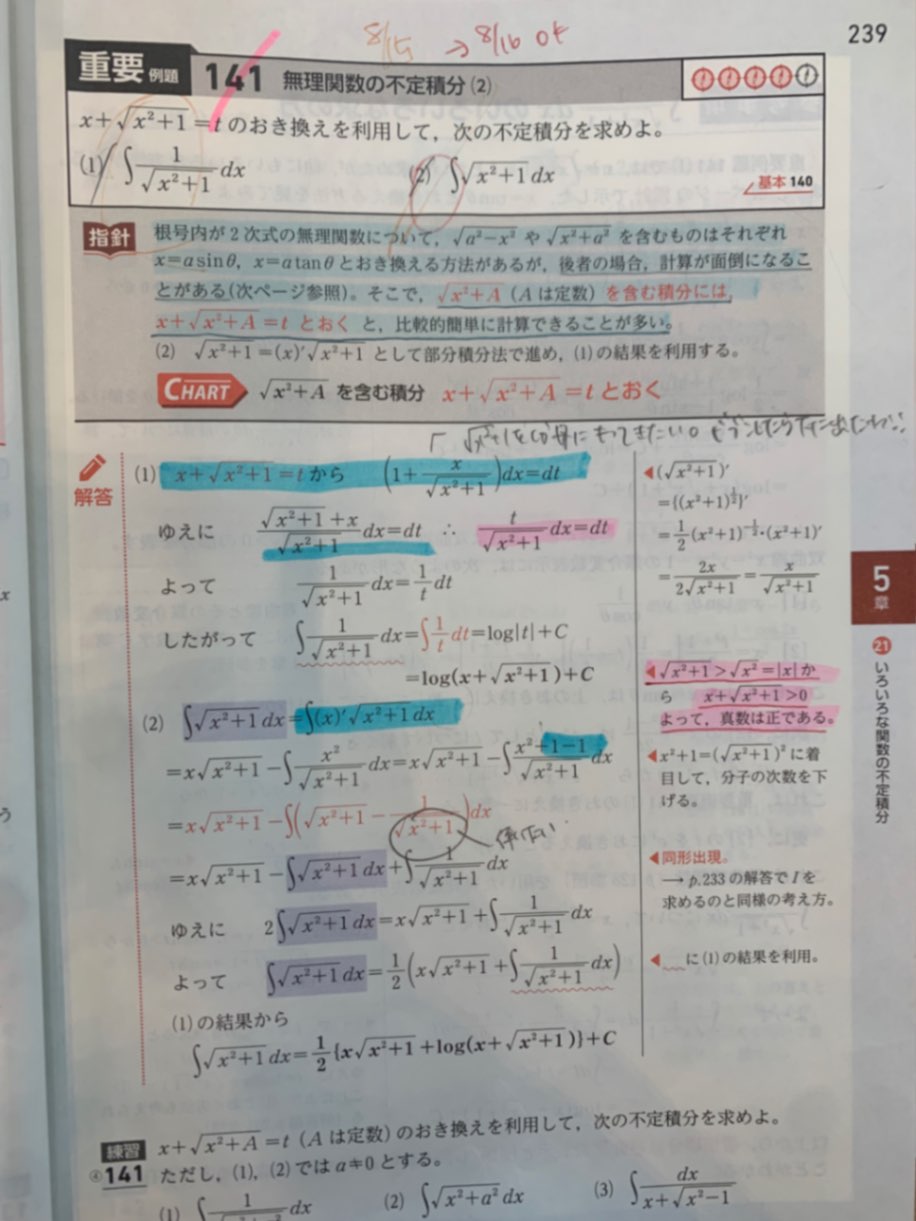 8/15 → 8/16 OK
239
重要 例題 141 無理関数の不定積分 (2)
x+√(x²+1)=t のおき換えを利用して，次の不定積分を求めよ。
(1) ∫1/√(x²+1) dx (2) ∫√(x²+1) dx
基本 140
指針 根号内が2次式の無理関数について，√(a²−x²) や √(x²+a²) を含むものはそれぞれ
x=a sinθ，x=a tanθ とおき換える方法があるが，後者の場合，計算が面倒になるこ
とがある(次ページ参照)。そこで，√(x²+A) (A は定数) を含む積分には，
x+√(x²+A)=t とおく と，比較的簡単に計算できることが多い。
(2) √(x²+1)=(x)′√(x²+1) として部分積分法で進め，(1)の結果を利用する。
CHART √(x²+A) を含む積分 x+√(x²+A)=t とおく
√(x²+1)を分母にもってきたい。
解答
(1) x+√(x²+1)=t から (1+x/√(x²+1))dx=dt
ゆえに (√(x²+1)+x)/√(x²+1) dx=dt ∴ t/√(x²+1) dx=dt
よって 1/√(x²+1) dx=1/t dt
したがって ∫1/√(x²+1) dx=∫1/t dt=log|t|+C
=log(x+√(x²+1))+C
(2) ∫√(x²+1) dx=∫(x)′√(x²+1) dx
=x√(x²+1)−∫x²/√(x²+1) dx=x√(x²+1)−∫(x²+1−1)/√(x²+1) dx
=x√(x²+1)−∫(√(x²+1)−1/√(x²+1))dx
=x√(x²+1)−∫√(x²+1) dx+∫1/√(x²+1) dx
ゆえに 2∫√(x²+1) dx=x√(x²+1)+∫1/√(x²+1) dx
よって ∫√(x²+1) dx=1/2(x√(x²+1)+∫1/√(x²+1) dx)
(1)の結果から
∫√(x²+1) dx=1/2{x√(x²+1)+log(x+√(x²+1))}+C
◀(√(x²+1))′
={(x²+1)^(1/2)}′
=1/2(x²+1)^(−1/2)・(x²+1)′
=2x/2√(x²+1)=x/√(x²+1)
◀√(x²+1)>√(x²)=|x|か
ら x+√(x²+1)>0
よって，真数は正である。
◀x²+1=(√(x²+1))²に着
目して，分子の次数を下
げる。
◀同形出現。
→p.233 の解答で I を
求めるのと同様の考え方。
◀﹏ に(1)の結果を利用。
5
章
21 いろいろな関数の不定積分
練習 x+√(x²+A)=t (A は定数) のおき換えを利用して，次の不定積分を求めよ。
④141 ただし，(1)，(2)では a≠0 とする。
(1) ∫1/ dx (2) ∫√(x²+a²) dx (3) ∫dx/(x+√(x²−1))